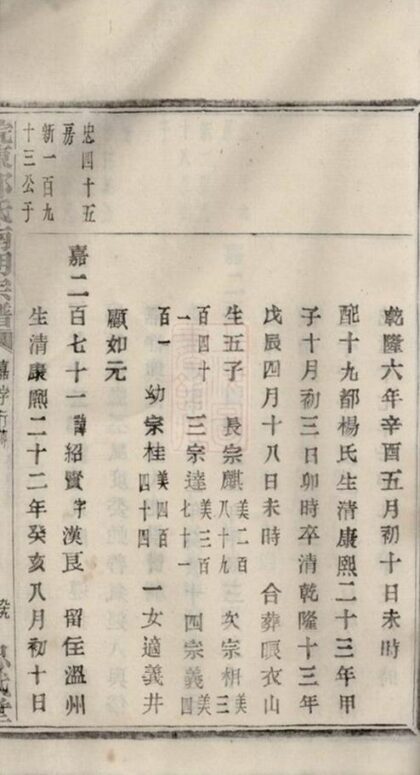 乾隆六年辛酉五月初十日未時
配十九都楊氏生清康熙二十三年甲
子十月初三日卯時卒清乾隆十三年
戊辰四月十八日未時 合葬暝衣山
生五子 長宗麒美二百八十九 次宗相美三
百四十一 三宗達美三百七十一 四宗義美四
百一 幼宗桂美四百四十四 一女適義井
顧如元
嘉二百七十一諱紹賢字漢良 留住溫州
生清康熙二十二年癸亥八月初十日
忠四十五
房
新一百九
十三公子
氏
宗譜
嘉字行